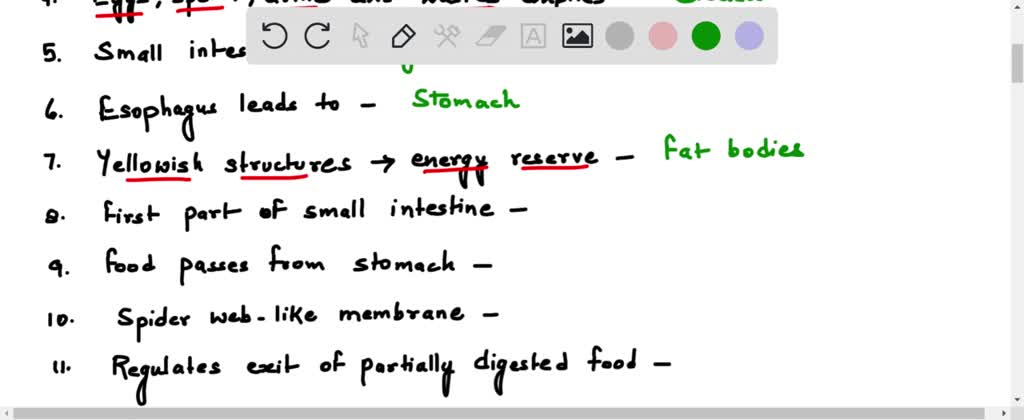 5. Small intes
6. Esophagus leads to - Stomach
7. Yellowish structures → energy reserve - Fat bodies
8. First part of small intestine -
9. Food passes from stomach -
10. Spider web-like membrane -
11. Regulates exit of partially digested food -